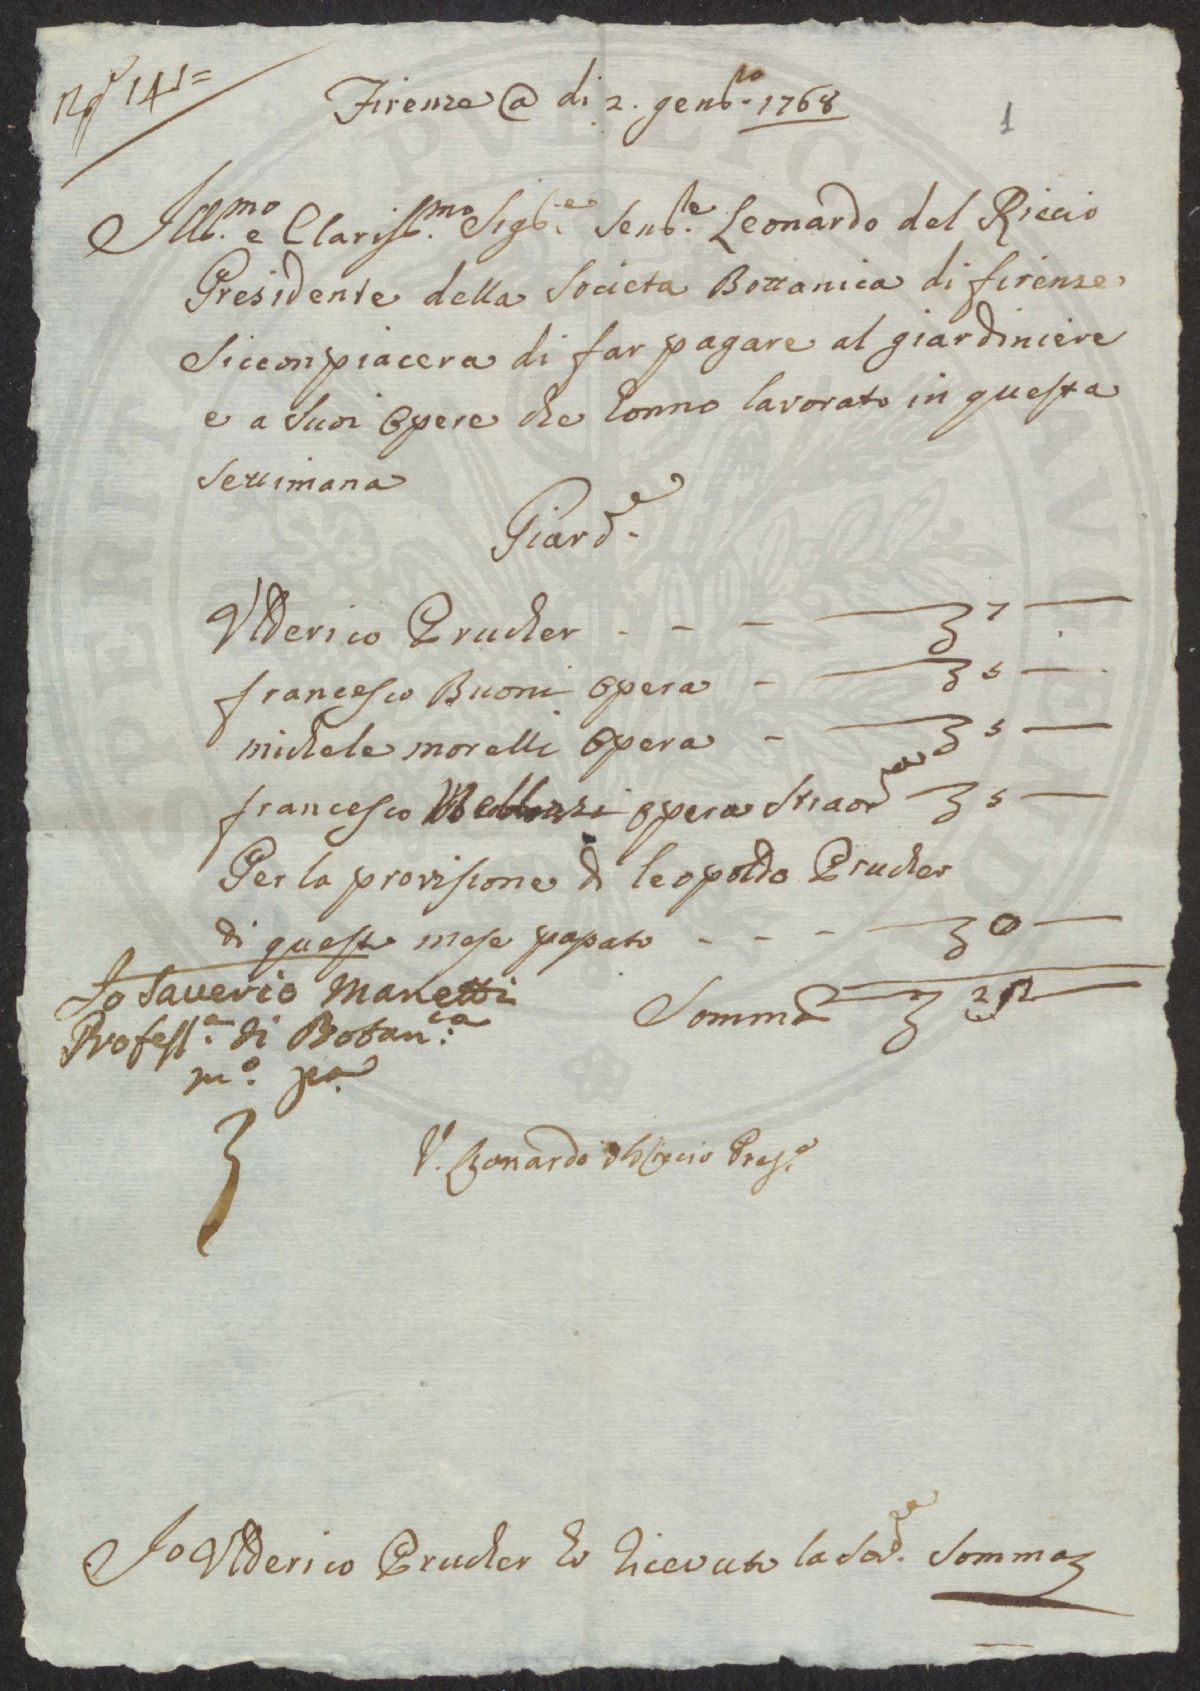 141=
Firenze @ di 2. genb.ro 1768
1
Ill.mo e Clariss.mo Sig.e Senb.e Leonardo del Riccio
Presidente della Societa Bottanica di firenze
Siconpiacera di far pagare al giardiniere
e a Suoi Opere che honno lavorato in questa
settimana
Giard.e
Ulderico Prucher - - - 7 —
francesco Buoni opera - 5 —
michele morelli Opera - 5 —
francesco opera Straord 5 —
Per la provisione di leopoldo Prucher
di questo mese papato - - - 0 —
Io Saverio Manetti
Profess.e di Botan.ca
m.o pa
Somma 22 —
V. Leonardo del Riccio Pres.e
Io Ulderico Prucher ho ricevuto la Sod.e Somma